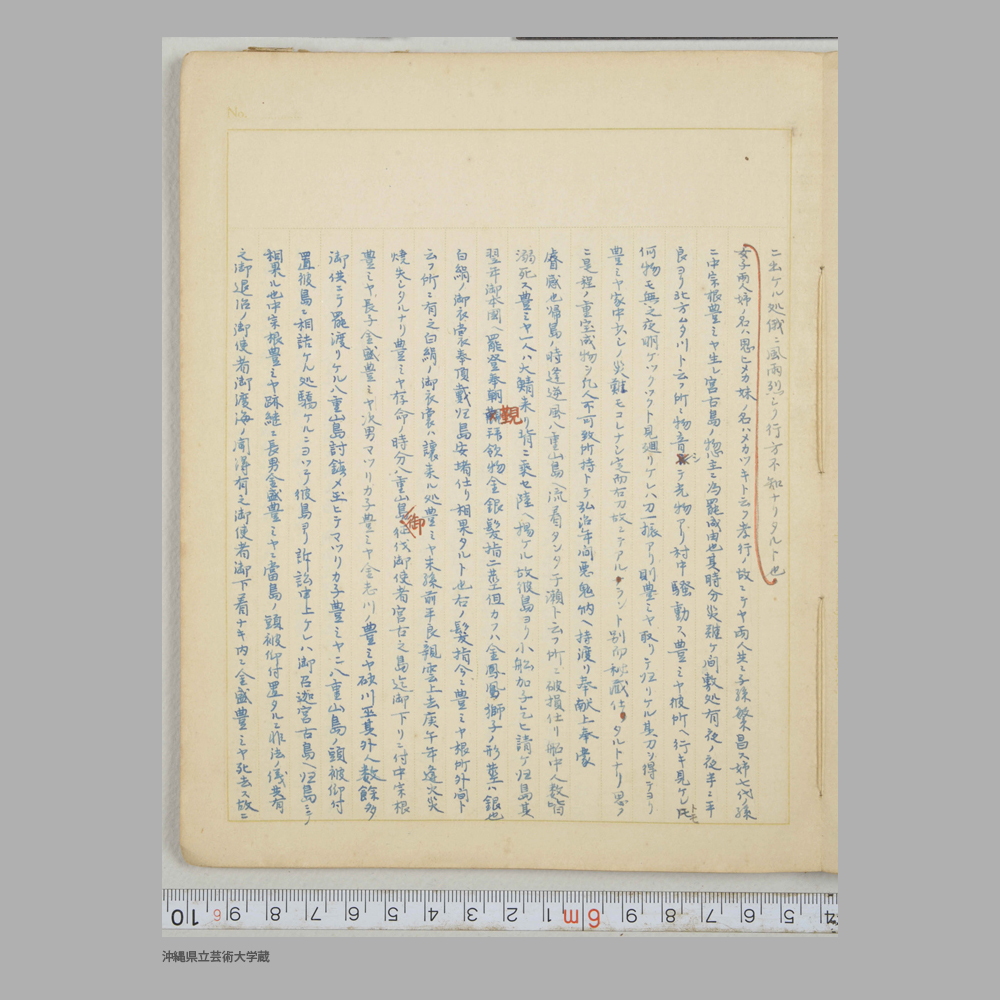 ニ出ケル処俄ニ風雨烈シク行方不知ナリタルト也
女子両人姉ノ名ハ思ヒメカ妹ノ名ハメカツキト云フ孝行ノ故ニテヤ両人生ミ子孫繁昌ス姉七代ノ孫
ニ中宗根豊ミヤ生レ宮古島ノ惣主ニ為罷成由也其時分災難ケ間敷処有夜ノ夜半ニ平
良ヨリ北方ムタ川ト云フ所ニ物音シテ光物アリ村中騒動ス豊ミヤ彼所ヘ行キ見ケレトモ
何物モ無之夜明ケツクツクト見廻リケレハ刀一振アリ則豊ミヤ取リテ归リケル其刀ヲ得テヨリ
豊ミヤ家中少シノ災難モコレナシ定而右刀故ニテアルランド別而秘蔵仕タルトナリ思フ
ニ是程ノ重宝成物ヲ凡人不可致所持トテ弘治年间悪鬼納ヘ持渡リ奉献上奉懐
睿感也帰島ノ時逢逆風八重山島ヘ流着タンタ干瀬ト云フ所ニ破損仕リ船中人数皆
溺死ス豊ミヤ一人ハ大鯖来リ背ニ乗セ陸ヘ揚ケル故彼島ヨリ小船加子乞ヒ請ケ归島其
翌年御本国ヘ罷登奉朝覲拝飲物金銀髪指二茎但カフハ金鳳凰獅子ノ形茎ハ銀也
白絹ノ御衣裳奉頂戴归島安堵仕リ相果タルト也右ノ髪指今ニ豊ミヤ根所外间ト
云フ所ニ有之白絹ノ御衣裳ハ譲来ル処豊ミヤ末孫前平良親雲上去庚午年逢火災
焼失シタルナリ豊ミヤ存命ノ時分八重山島御征伐御使者宮古之島迄御下リニ付中宗根
豊ミヤ長子金盛豊ミヤ次男マツリカ子豊ミヤ金志川ノ豊ミヤ砍川巫其外人数餘多
御供ニテ罷渡リケル八重山島討鎮メ玉ヒテマツリカ子豊ミヤニ八重山島ノ頭被仰付
置彼島ニ相詰ケル処驕ケルニヨツテ彼島ヨリ訴訟申上ケレハ御召迦宮古島ヘ归島ニテ
相果ル也中宗根豊ミヤ跡継ニ長男金盛豊ミヤニ當島ノ頭被仰付置タルニ非法ノ儀共有
之御退治ノ御使者御渡海ノ聞得有之御使者御下着ナキ内ニ金盛豊ミヤ死去ス故ニ
沖縄県立芸術大学蔵